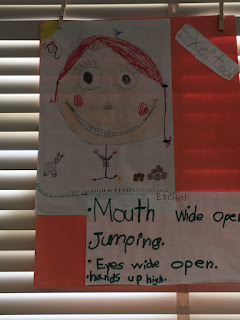 Excited
Excited
• Mouth wide open
Jumping.
• Eyes wide open.
• hands up high.